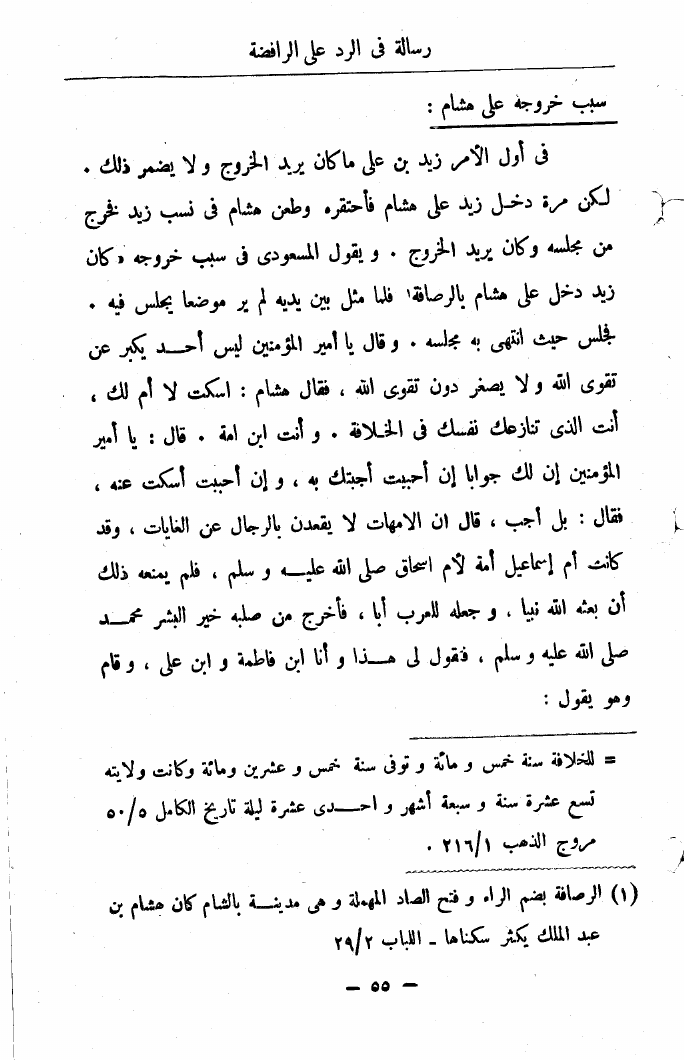 رسالة فى الرد على الرافضة
سبب خروجه على هشام :
فى أول الأمر زيد بن على ماكان يريد الخروج ولا يضمر ذلك .
لكن مرة دخل زيد على هشام فأحتقره وطعن هشام فى نسب زيد فخرج
من مجلسه وكان يريد الخروج . ويقول المسعودى فى سبب خروجه «كان
زيد دخل على هشام بالرصافة١ فلما مثل بين يديه لم ير موضعا يجلس فيه .
فجلس حيث انتهى به مجلسه . وقال يا أمير المؤمنين ليس أحد يكبر عن
تقوى الله ولا يصغر دون تقوى الله ، فقال هشام : اسكت لا أم لك ،
أنت الذى تنازعك نفسك فى الخلافة . و أنت ابن امة . قال : يا أمير
المؤمنين إن لك جوابا إن أحببت أجبتك به ، و إن أحببت أسكت عنه ،
فقال : بل أجب ، قال ان الامهات لا يقعدن بالرجال عن الغايات ، وقد
كانت أم إسماعيل أمة لأم اسحاق صلى الله عليه و سلم ، فلم يمنعه ذلك
أن بعثه الله نبيا ، و جعله للعرب أبا ، فأخرج من صلبه خير البشر محمد
صلى الله عليه و سلم ، فنقول لى هذا و أنا ابن فاطمة و ابن على ، و قام
وهو يقول :
= للخلافة سنة خمس و مائة و توفى سنة خمس و عشرين ومائة وكانت ولايته
تسع عشرة سنة و سبعة أشهر و احدى عشرة ليلة تاريخ الكامل ٥٠/٥
مروج الذهب ٢١٦/١ .
(١) الرصافة بضم الراء و فتح الصاد المهملة و هى مدينة بالشام كان هشام بن
عبد الملك يكثر سكناها - اللباب ٢٩/٢
— ٥٥ —